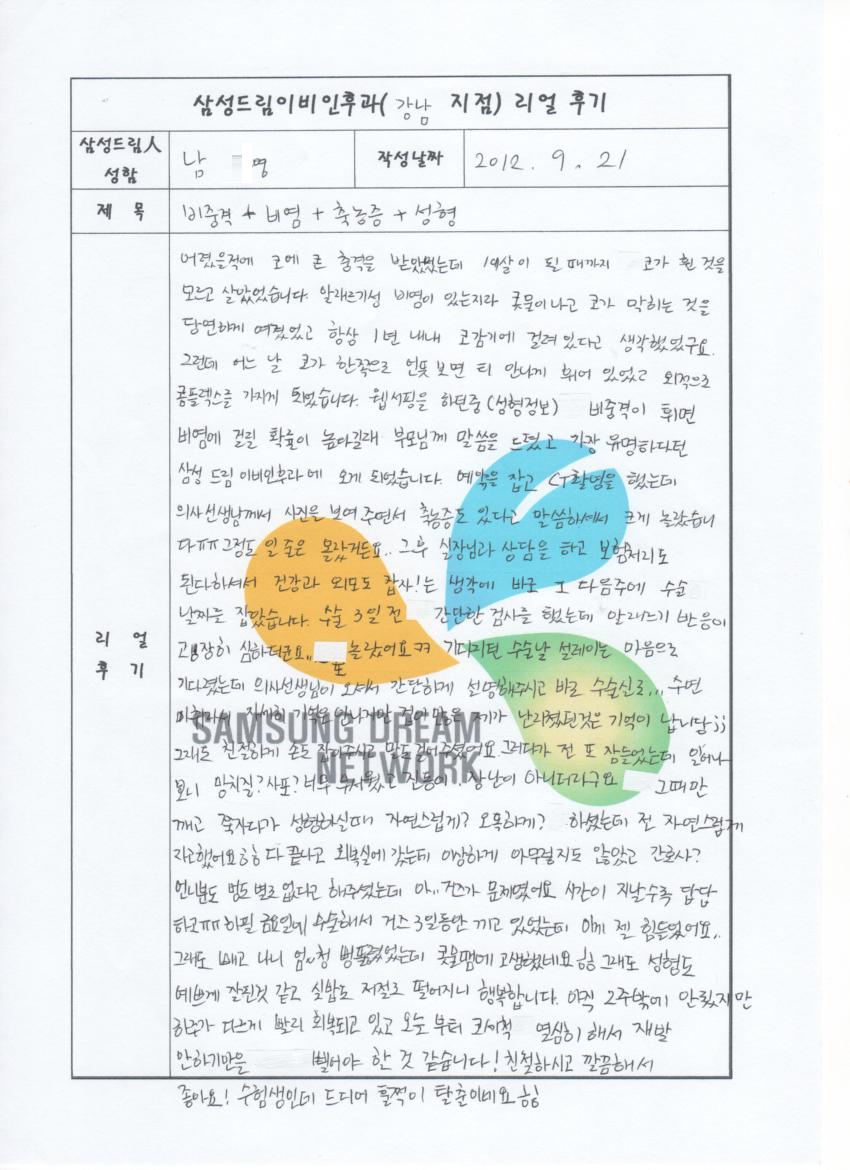 삼성드림이비인후과( 강남 지점) 리얼 후기
삼성드림人 성함
남 명
작성날짜
2012. 9. 21
제 목
비중격 + 비염 + 축농증 + 성형
리 얼
후 기
어렸을적에 코에 큰 충격을 받았었는데 19살이 될 때까지 코가 휜 것을
모르고 살았었습니다. 알래르기성 비염이 있는지라 콧물이나고 코가 막히는 것을
당연하게 여겼었고 항상 1년 내내 코감기에 걸려있다고 생각했었구요.
그런데 어느 날 코가 한쪽으로 언뜻 보면 티 안나게 휘어 있었고 외적으로
콤플렉스를 가지게 되었습니다. 웹서핑을 하던중(성형정보) 비중격이 휘면
비염에 걸릴 확률이 높다길래 부모님께 말씀을 드렸고 가장 유명하다던
삼성 드림 이비인후과에 오게 되었습니다. 예약을 잡고 CT촬영을 했는데
의사선생님께서 사진을 보여주면서 축농증도 있다고 말씀하셔서 크게 놀랐습니
다ㅠㅠ 그정도 일 줄은 몰랐거든요.. 그후 실장님과 상담을 하고 보험처리도
된다하셔서 건강과 외모도 잡자!는 생각에 바로 그 다음주에 수술
날짜를 잡았습니다. 수술 3일 전 간단한 검사를 했는데 알래르기 반응이
굉장히 심하더군요.. 또 놀랐어요ㅋㅋ 기다리던 수술날 설레이는 마음으로
기다렸는데 의사선생님이 오셔서 간단하게 설명해주시고 바로 수술실로... 수면
마취라서 자세히 기억은 안나지만 겁이많은 제가 난리쳤던것은 기억이 납니당;;
그래도 친절하게 손도 잡아주시고 말도 걸어주셨어요. 그러다가 전 또 잠들었는데 일어나
보니 망치질? 사포? 너무 무서웠고 진동이.. 장난이 아니더라구요 그때만
깨고 쭉자다가 성형하실때 자연스럽게? 오똑하게? 하셨는데 전 자연스럽게
라고했어요ㅎㅎ 다 끝나고 회복실에 갔는데 이상하게 아무렇지도 않았고 간호사?
언니분도 멍도 별로 없다고 해주셨는데 아.. 거즈가 문제였어요 시간이 지날수록 답답
하고ㅠㅠ 하필 금요일에 수술해서 거즈 3일동안 끼고 있었는데 이게 젤 힘들었어요..
그래도 빼고 나니 엄~청 뻥뚫렸었는데 콧물땜에 고생했네요ㅎㅎ 그래도 성형도
예쁘게 잘된것 같고 실밥도 저절로 떨어지니 행복합니다. 아직 2주밖에 안됐지만
하루가 다르게 빨리 회복되고 있고 오늘 부터 코세척 열심히 해서 재발
안하기만을 빌어야 한 것 같습니다! 친절하시고 깔끔해서
좋아요! 수험생인데 드디어 훌쩍이 탈출이네요ㅎㅎ
SAMSUNG DREAM
NETWORK